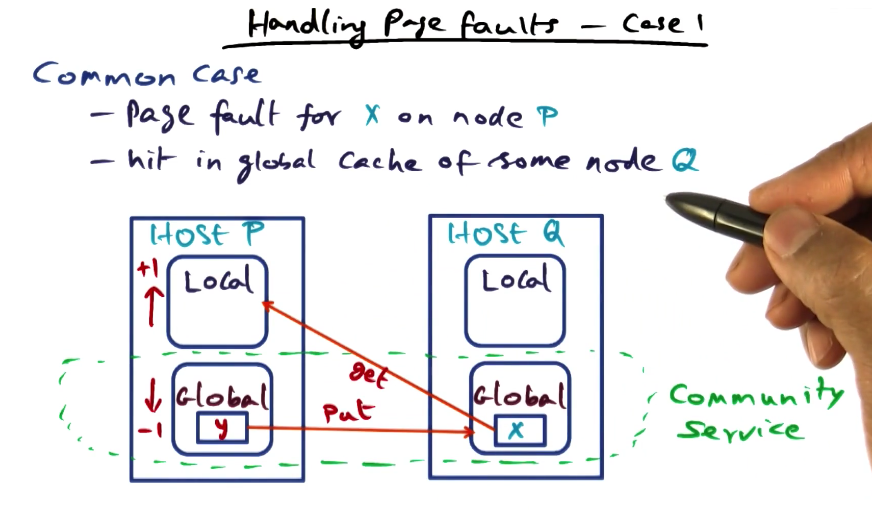 Handling Page faults – Case 1
Common Case
– Page fault for X on node P
– hit in global cache of some node Q
HOST P
HOST Q
+1
Local
Local
get
Global
Global
Community
Service
-1
y
Put
X